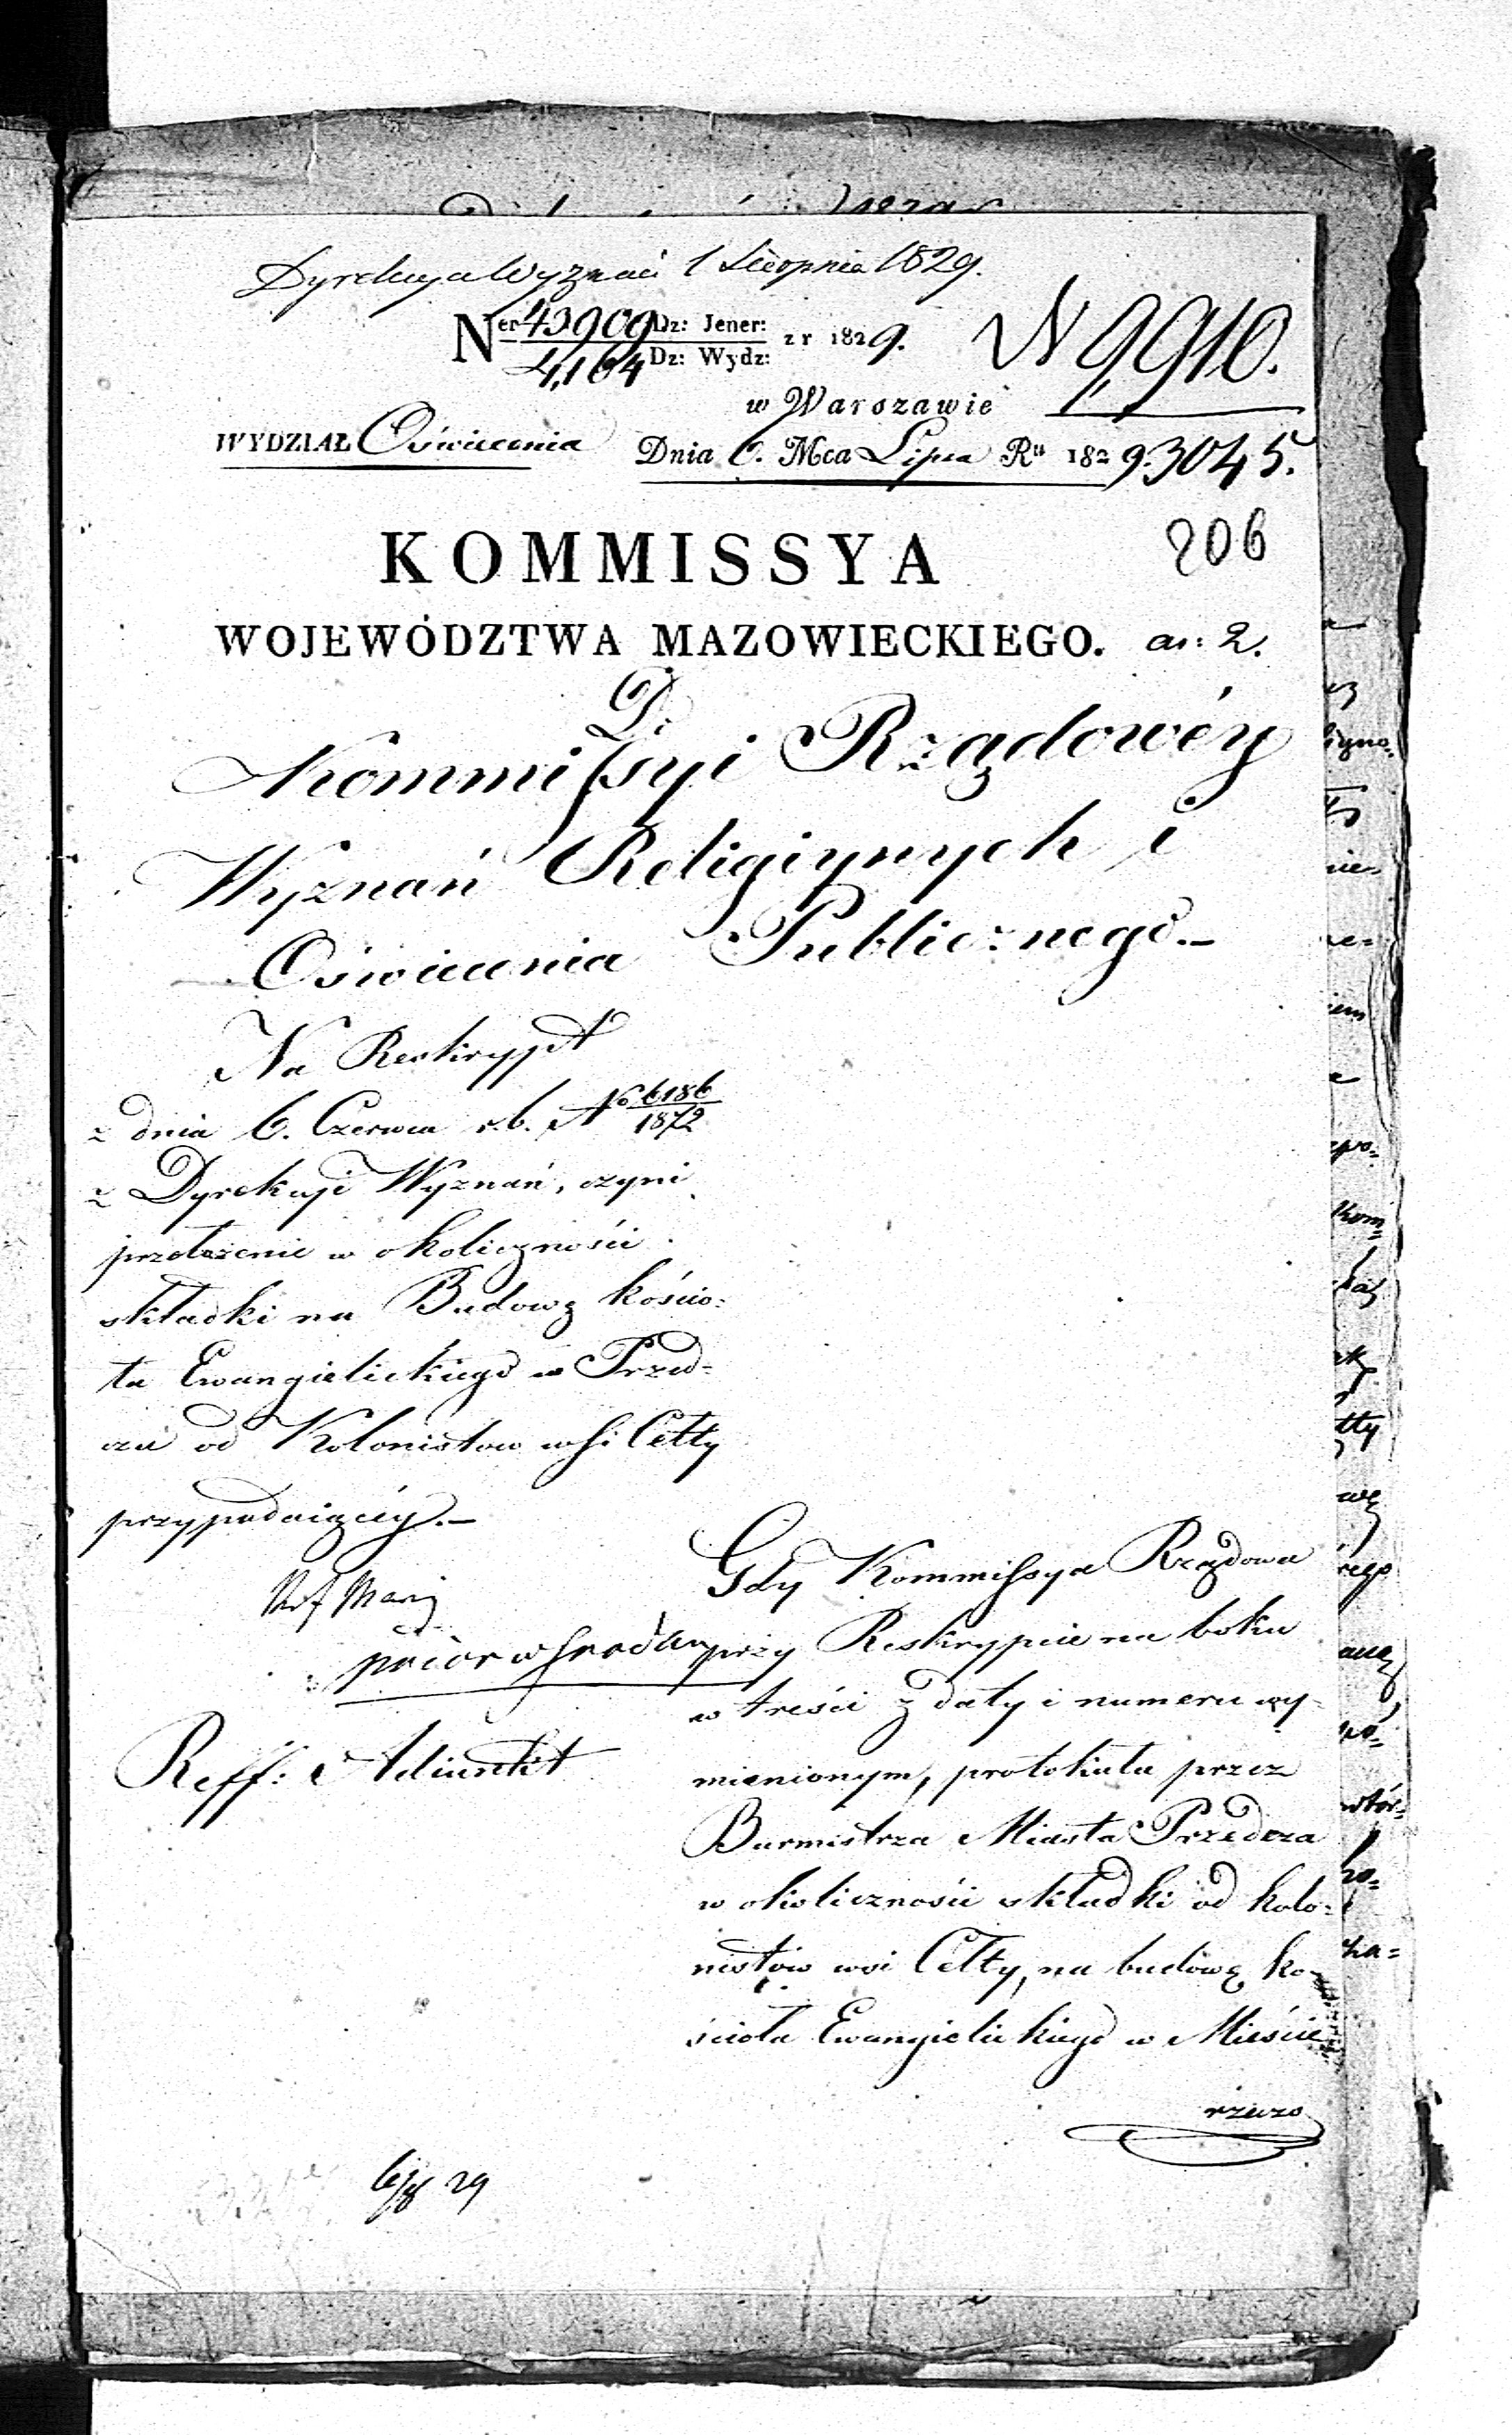 Dyrekcya Wyznań 1 Sierpnia 1829.
Ner 43909 Dz: Jener: z r 1829. N 9,910.
4,164 Dz: Wydz:
w Warszawie
WYDZIAŁ Oświecenia Dnia 6. Mca Lipca Ru 1829. 3045.
206
KOMMISSYA
WOJEWÓDZTWA MAZOWIECKIEGO. an: 2.
D:
Kommissyi Rządowéy
Wyznań Religiynych i
Oświecenia Publicznego.–
Na Reskrypt
z dnia 6. Czerwca r. b. No 6186/1872
z Dyrekcyi Wyznań, czyni
przełożenie w okoliczności
składki na Budowę kościo:
ła Ewangielickiego w Przed=
czu od Kolonistow wsi Cetty
przypadaiącéy.–
Reff: Adiunkt
Gdy Kommissya Rządowa
przy Reskrypcie na boku
w treści z daty i numeru wy=
mienionym, protokułu przez
Burmistrza Miasta Przedcza
w okoliczności składki od kolo=
nistów wsi Cetty, na budowę ko=
ścioła Ewangielickiego w Mieście
rzeczo
6/8 29